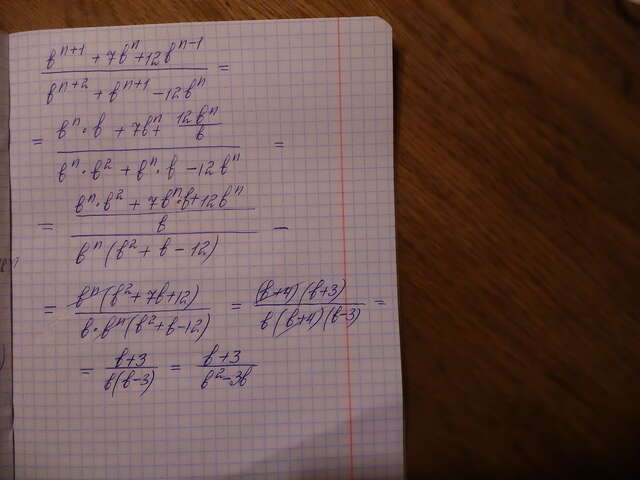 (b^{n+1} + 7b^n + 12b^{n-1}) / (b^{n+2} + b^{n+1} - 12b^n) =
= (b^n · b + 7b^n + 12b^n/b) / (b^n · b^2 + b^n · b - 12b^n) =
= ((b^n · b^2 + 7b^n · b + 12b^n) / b) / (b^n (b^2 + b - 12)) =
= b^n (b^2 + 7b + 12) / (b · b^n (b^2 + b - 12)) = (b+4)(b+3) / (b(b+4)(b-3)) =
= (b+3) / (b(b-3)) = (b+3) / (b^2 - 3b)